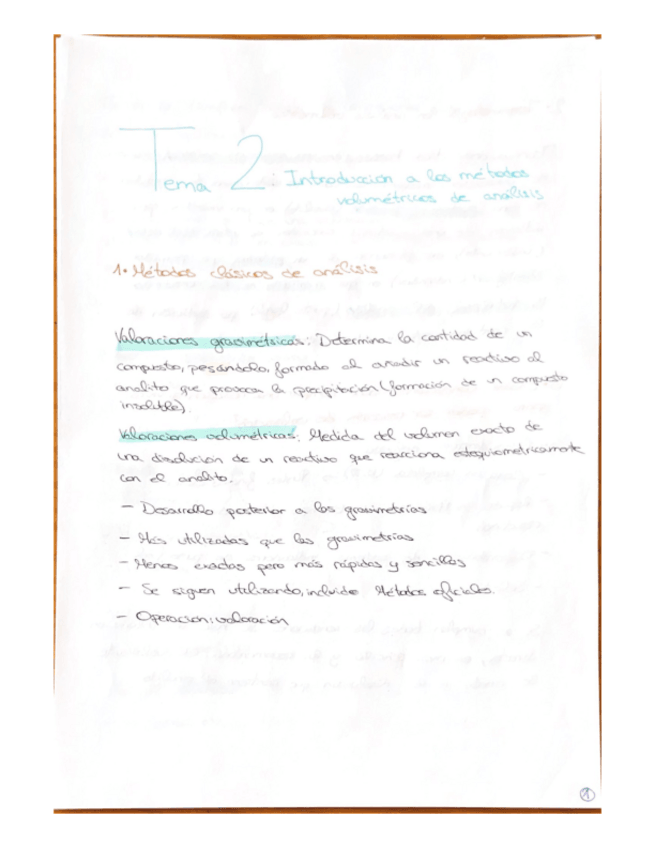 Tema 2: Introducción a los métodos
volumétricos de análisis
1. Métodos clásicos de análisis
Valoraciones gravimétricas: Determina la cantidad de un
compuesto, pesándolo, formado al añadir un reactivo al
analito que provoca la precipitación (formación de un compuesto
insoluble).
Valoraciones volumétricas: Medida del volumen exacto de
una disolución de un reactivo que reacciona estequiometricamente
con el analito.
- Desarrollo posterior a las gravimetrías
- Más utilizadas que las gravimetrías
- Menos exactas pero más rápidas y sencillas
- Se siguen utilizando, incluido Métodos oficiales.
- Operación: valoración
1